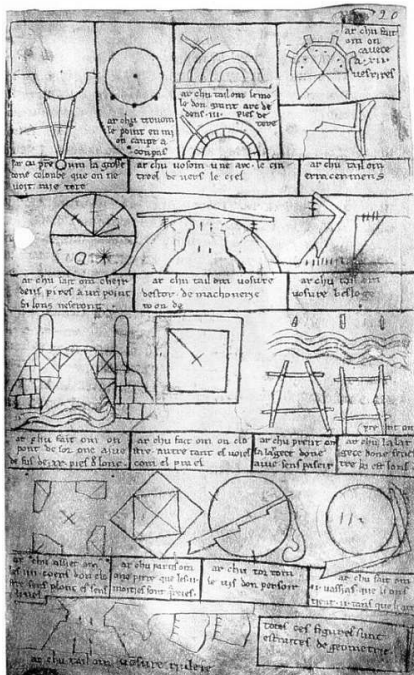 20
ar chu fait
om on
cavece
a .xii.
vesrires
ar chu tail om le mo
le don grant arc de
dens .iii. pies de
tere
ar chu trovom
le point en mi
on caupe a
conpas
ar cu pre om la grosse
done colonbe que on ne
voit mie tote
ar chu vosom une arc le cin
treel de vers le ciel
ar chu tail om
erracemens
ar chu fait om cheir
deus pires a un point
si lons ne seront
ar chu tail om vosure
destor de machonerie
roonde
ar chu tail om
vosure besloge
ar chu fait om on
pont desor one aive
de fus de .xx. pies lonc
ar chu fait om on clo
stre autretant es voies
com el prael
ar chu prent om
la largece done
aive sens paseir
ar chu la lar
gece done fenes
tre ki est lons
ar chu assiet om
les .iiii. coens don clo
stre sens plonc et sens
livel
ar chu partis om
one pirre que les .ii.
moitiés sont
ar chu torn
le vis don persoir
ar chu fait om
.ii. vassias que li ons
tient .ii. tans que li
totes ces figures sunt
estraites de geometrie.
ar chu tail om vosure riulee